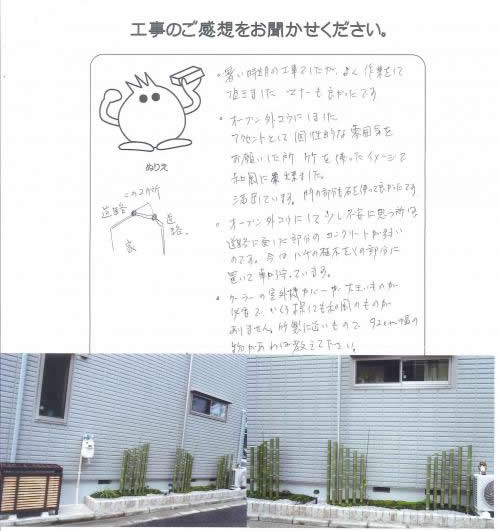 工事のご感想をお聞かせください。
・暑い時期の工事でしたが、よく作業をして
頂きました マナーも良かったです
・オープン外コウにしました
アクセントとして個性的な雰囲気を
お願いした所 竹を使ったイメージで
和風に出来ました。
満足しています。門の部分も石を使って良かったです
・オープン外コウにして少し不安に思う所は、
道路に面した部分のコンクリートが弱い
のです。今はハチの植木をその部分に
置いて 車
います。
・クーラーの室外機カバーが、大きいものが
必要で、いくら探しても和風のものが
ありません。竹製に近いもので 92cm幅の
物があれば教えて下さい。
ぬりえ
この2ヶ所
道路
道路
家